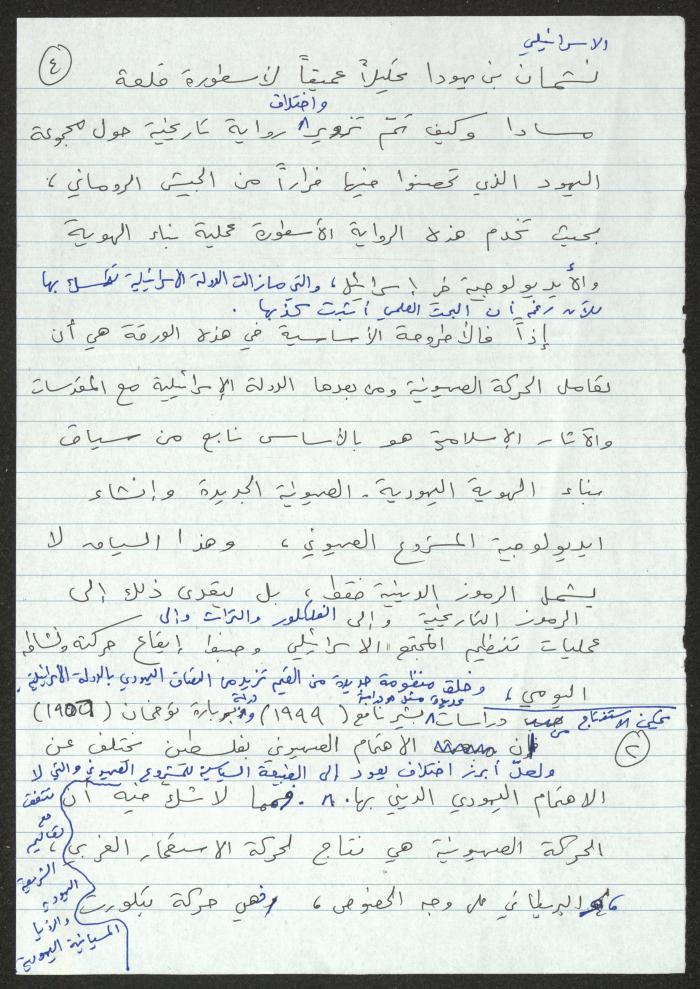 ٤
الاسرائيلي
نشمان بن يهودا تحليلاً عميقاً لأسطورة قلعة
واختلاق
مسادا وكيف تمّ تزوير رواية تاريخية حول مجموعة
اليهود الذي تحصنوا فيها فراراً من الجيش الروماني،
بحيث تخدم هذه الرواية الأسطورة عملية بناء الهوية
والأيديولوجية في اسرائيل، والتي مازالت الدولة الاسرائيلية تتمسك بها
للآن رغم أن البحث العلمي أثبت كذبها.
إذاً فالأطروحة الأساسية في هذه الورقة هي أن
تعامل الحركة الصهيونية ومن بعدها الدولة الإسرائيلية مع المقدسات
والآثار الإسلامية هو بالأساس نابع من سياق
بناء الهوية اليهودية - الصهيونية الجديدة وإنشاء
ايديولوجية المشروع الصهيوني، وهذا السياق لا
يشمل الرموز الدينية فقط، بل يتعدى ذلك إلى
الرموز التاريخية وإلى الفلكلور والتراث وإلى
عمليات تنظيم المجتمع الاسرائيلي وضبط إيقاع حركته ونشاطه
اليومي، وخلق منظومة جديدة من القيم تزيد من التصاق اليهودي بالدولة الاسرائيلية.
عديدة مثل دراسة
يمكن الاستنتاج من دراسات بشير نافع (١٩٩٩) ودراسة بربارة توخمان
٢
أن الاهتمام الصهيوني بفلسطين يختلف عن
ولعلّ أبرز اختلاف يعود إلى الطبيعة السياسية للمشروع الصهيوني والتي لا
الاهتمام اليهودي الديني بها. فمما لا شك فيه أن
تتفق
مع
تعاليم
الشريعة
اليهودية
والرؤيا
المسيانية اليهودية
الحركة الصهيونية هي نتاج لحركة الاستعمار الغربي،
البريطاني على وجه الخصوص، فهي حركة تبلورت